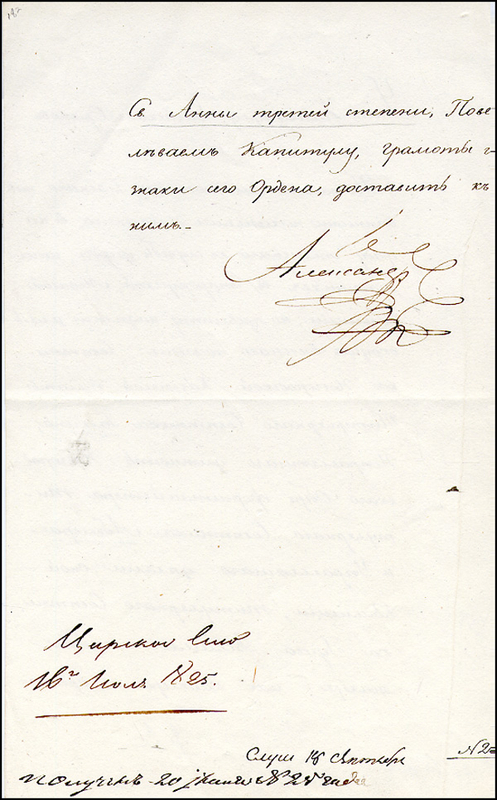 187
Св. Анны третей степени, Пове-
лѣваемъ Капитулу, грамоты и
знаки сего Ордена, доставить къ
нимъ.
Александръ
Царское Село
Июля 1825.
Слуш 18 Сентября
Получено 20